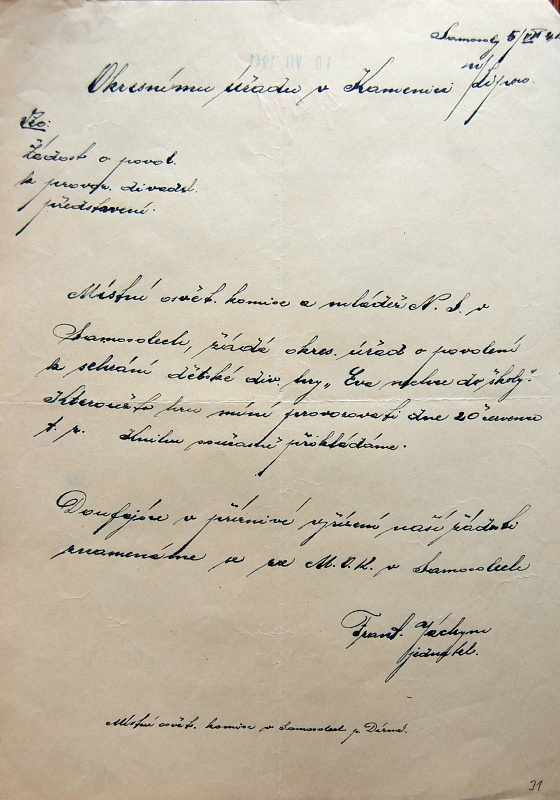 Samosoly 5/VII 41
Okresnímu úřadu v Kamenici n/Lipou.
10 VII 1941
Věc:
Žádost o povol.
k provoz. divadel.
představení.
Místní osvět. komise a mládež N. S. v
Samosolech, žádá okres. úřad o povolení
k sehrání dětské div. hry „Eva nechce do školy".
Kteroužto hru míní provozovati dne 20 července
t. r. Knihu současně přikládáme.
Doufajíce v příznivé vyřízení naší žádosti
znamenáme se za M. O. K. v Samosolech
Frant.
jednatel.
Místní osvět. komise v Samosolech p. Dírná.
31